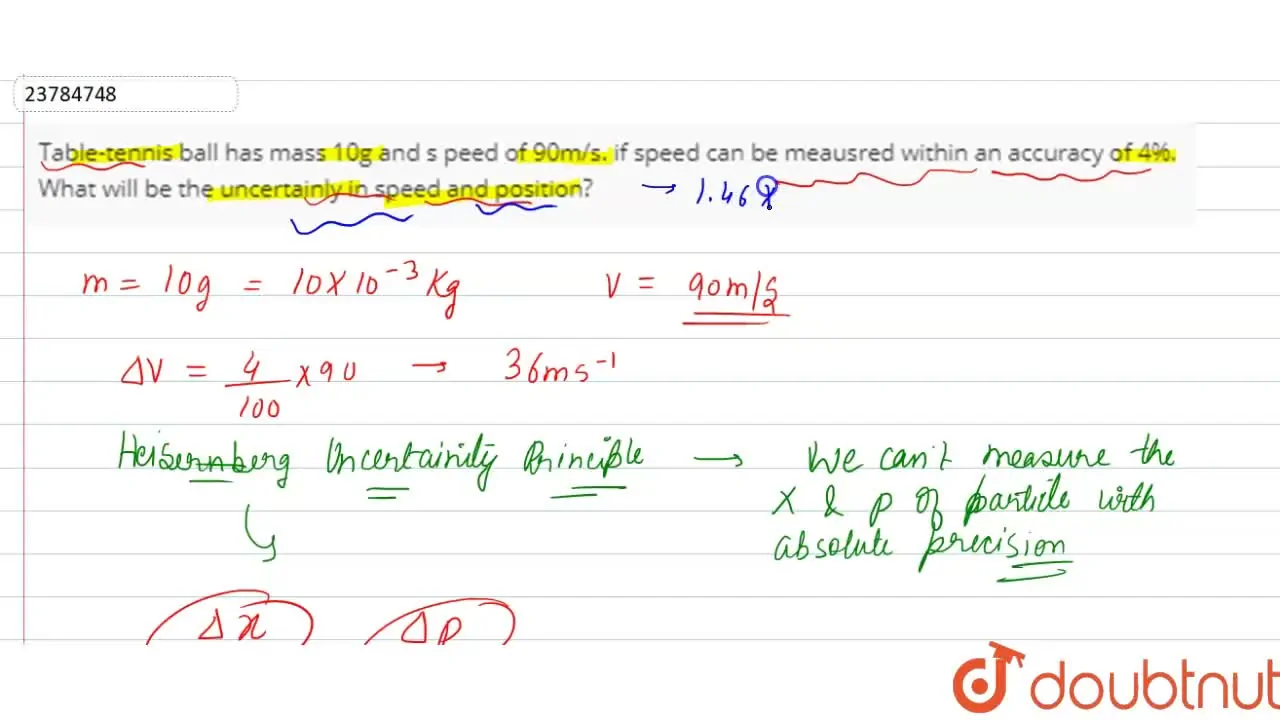 23784748
Table-tennis ball has mass 10g and s peed of 90m/s. if speed can be meausred within an accuracy of 4%.
What will be the uncertainly in speed and position? → 1.46 x
m = 10g = 10 X 10⁻³ Kg V = 90m/s
ΔV = 4/100 x 90 → 36ms⁻¹
Heisernberg Uncertainity Principle → We can't measure the
x & p of particle with
absolute precision
Δx Δp
doubtnut